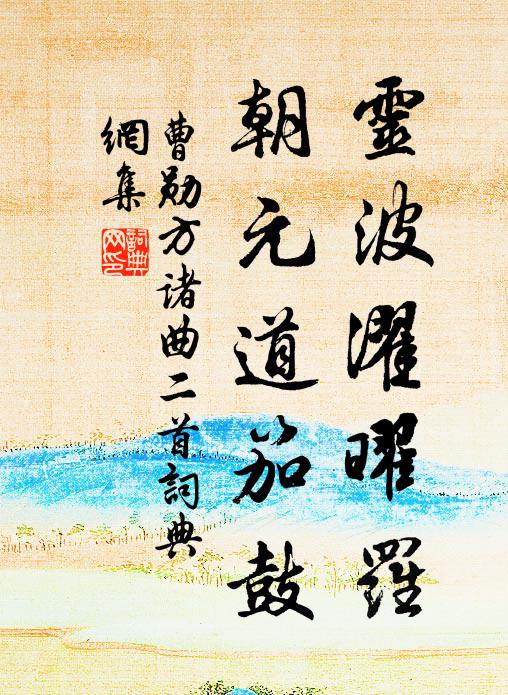 靈波濯曜羅
朝元道笳鼓
曹勛方诸曲二首詞典
網集
詞典
网印